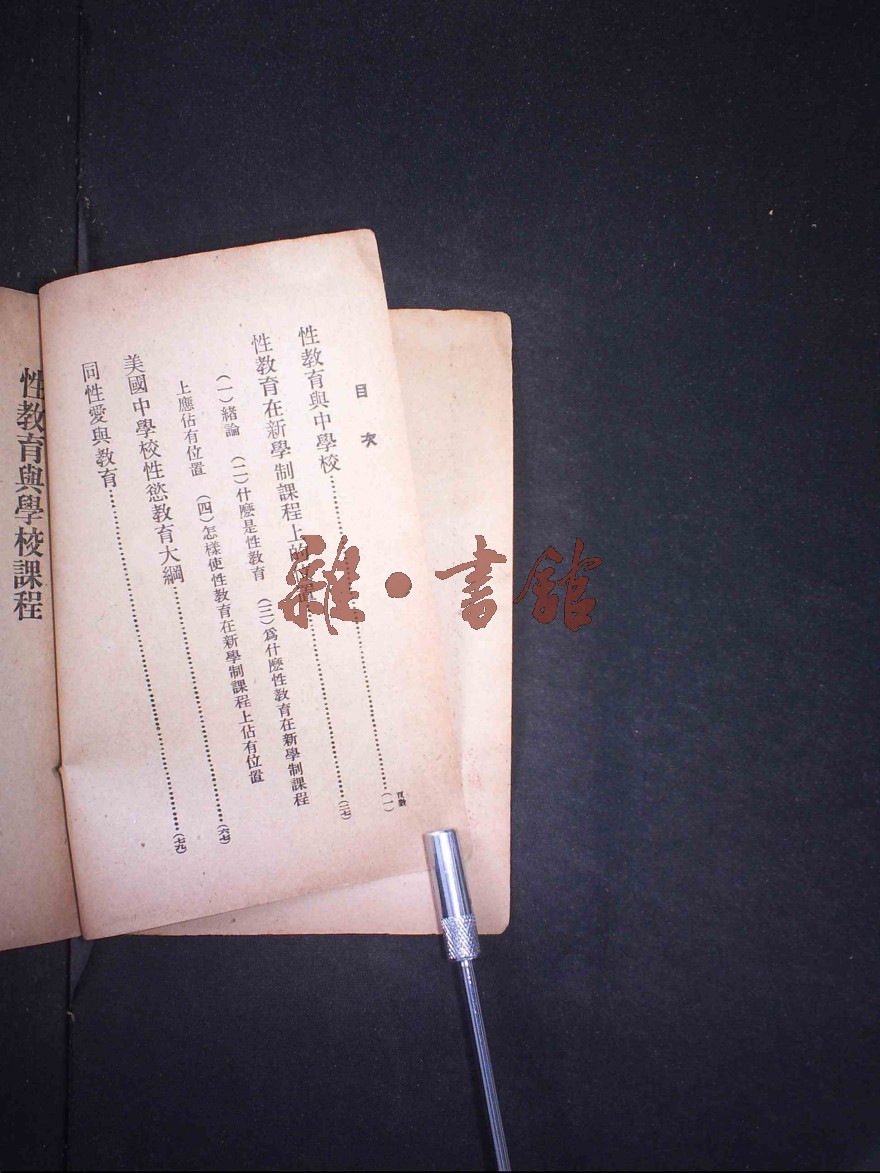 目次
頁數
性教育與中學校……(一)
性教育在新學制課程上的位置……(二七)
(一)緒論 (二)什麽是性教育 (三)爲什麽性教育在新學制課程
上應佔有位置 (四)怎樣使性教育在新學制課程上佔有位置
美國中學校性慾教育大綱……(六七)
同性愛與教育……(七九)
性教育與學校課程
雜·書館